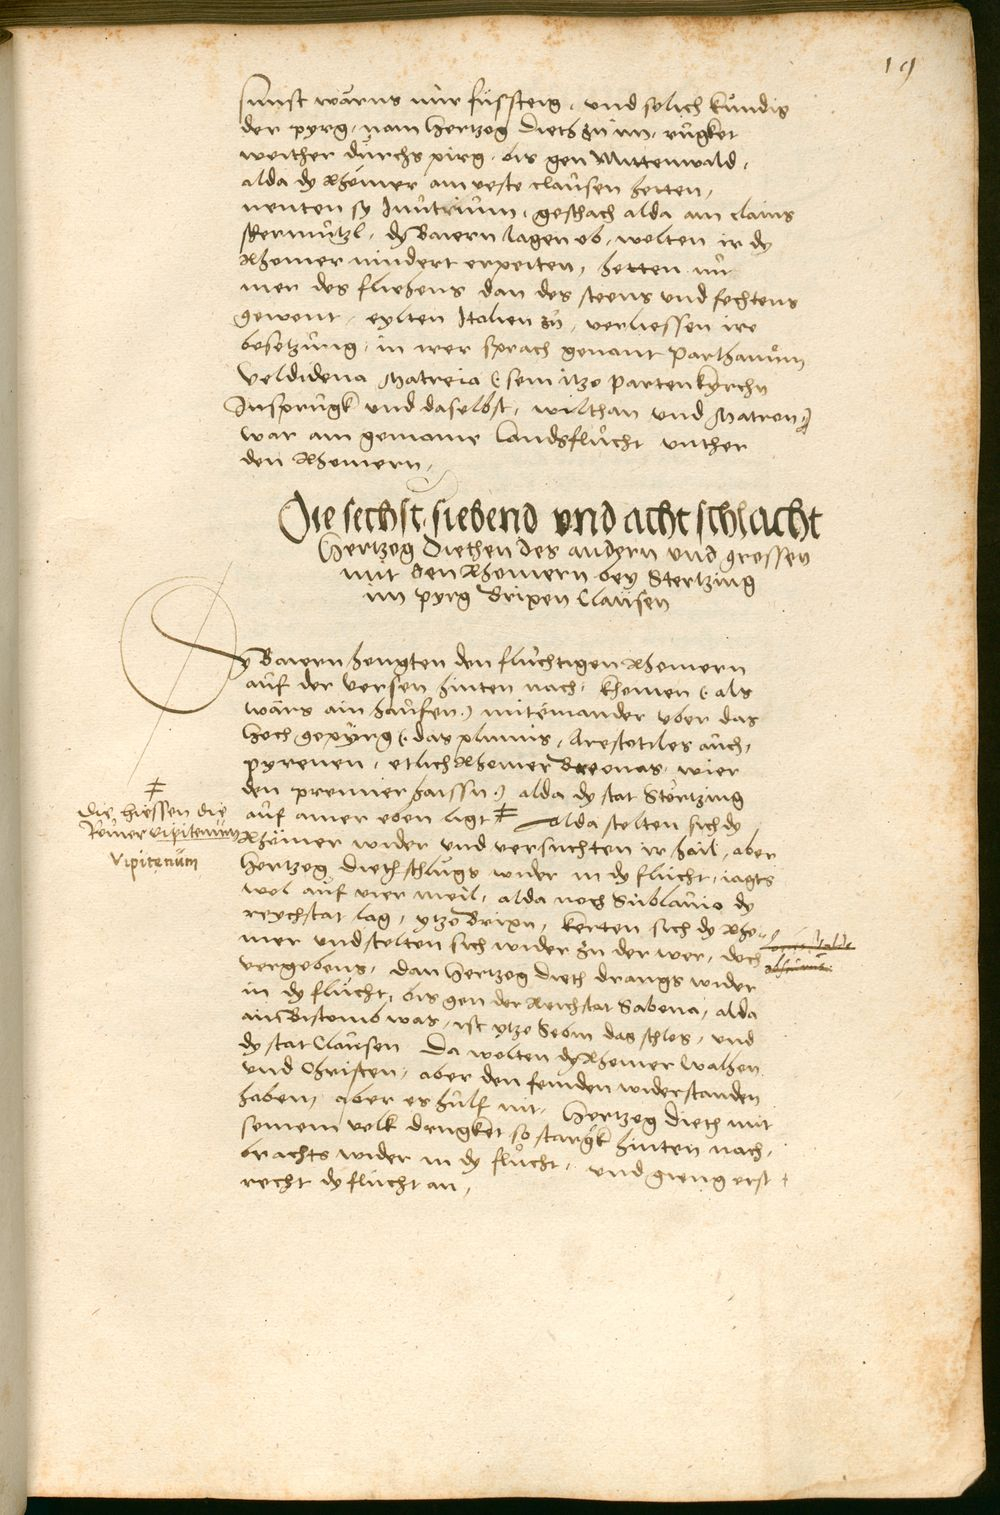 19
sunst wärns nür füsssteig, und solich kündig
der pyrg, nam Hertzog Dieth zu im, rügket
weither dürchs pirg, bis gen Mittenwald,
alda dy Rhömer ain veste clausen hetten,
nenten sy Inutrium, geschach alda ain clains
schermützl, dy Baiern lagen ob, wolten ir dy
Rhomer nindert erpeiten, hetten nür
mer des fliehens dan des steens und fechtens
gewent, eylten Italien zu, verliessen ire
besetzung, in irer sprach genant Parthanum
Veldidena Matreia (: sein itzo Partenkyrchn
Insprugk und daselbst, Wilthan und Matron :)
war ain gemaine landsflucht unther
den Rhomern,
Die sechst, siebend und acht schlacht
Hertzog Diethen des andern und grossen
mit den Rhomern bey Stertzing
im pyrg Brixen Clausen
Dy Baiern hengten den flüchtigen Rhomern
auf der versen hinten nach, khomen (: als
wärs ain haufen :) miteinander uber das
hoch gepyrg (: das plinius, Arestotiles auch,
pyrenen, etlich Rhomer Breonas, wier
den prenner haissn :) alda dy stat Störtzing
auf ainer eben ligt ‡ alda stelten sich dy
‡
die hiessen die
Römer vipitenum
Vipitenüm
Rhömer wider und versuchten ir hail, aber
Hertzog Dieth schlugs wider in dy flucht, iagts
wol auf vier meil, alda noch Sublavio dy
reychstat lag, ytzo Brixn, kerten sich dy Rho-
mer und stelten sich wider zu der wer, doch
vergebens, dan Hertzog Dieth drangs wider
in dy flucht, bis gen der Reichstat Sabona, alda
ain Bistomb was, ist ytzo Sebm das schlos, und
dy stat Clausen. Da wolten dy Rhomer Walhen
und Christen, aber den feinden widerstanden
haben, aber es hulf nit, Hertzog Dieth mit
seinem volk drugket so starck hinten nach,
brachts wider in dy flucht, und gieng erst
recht dy flucht an,